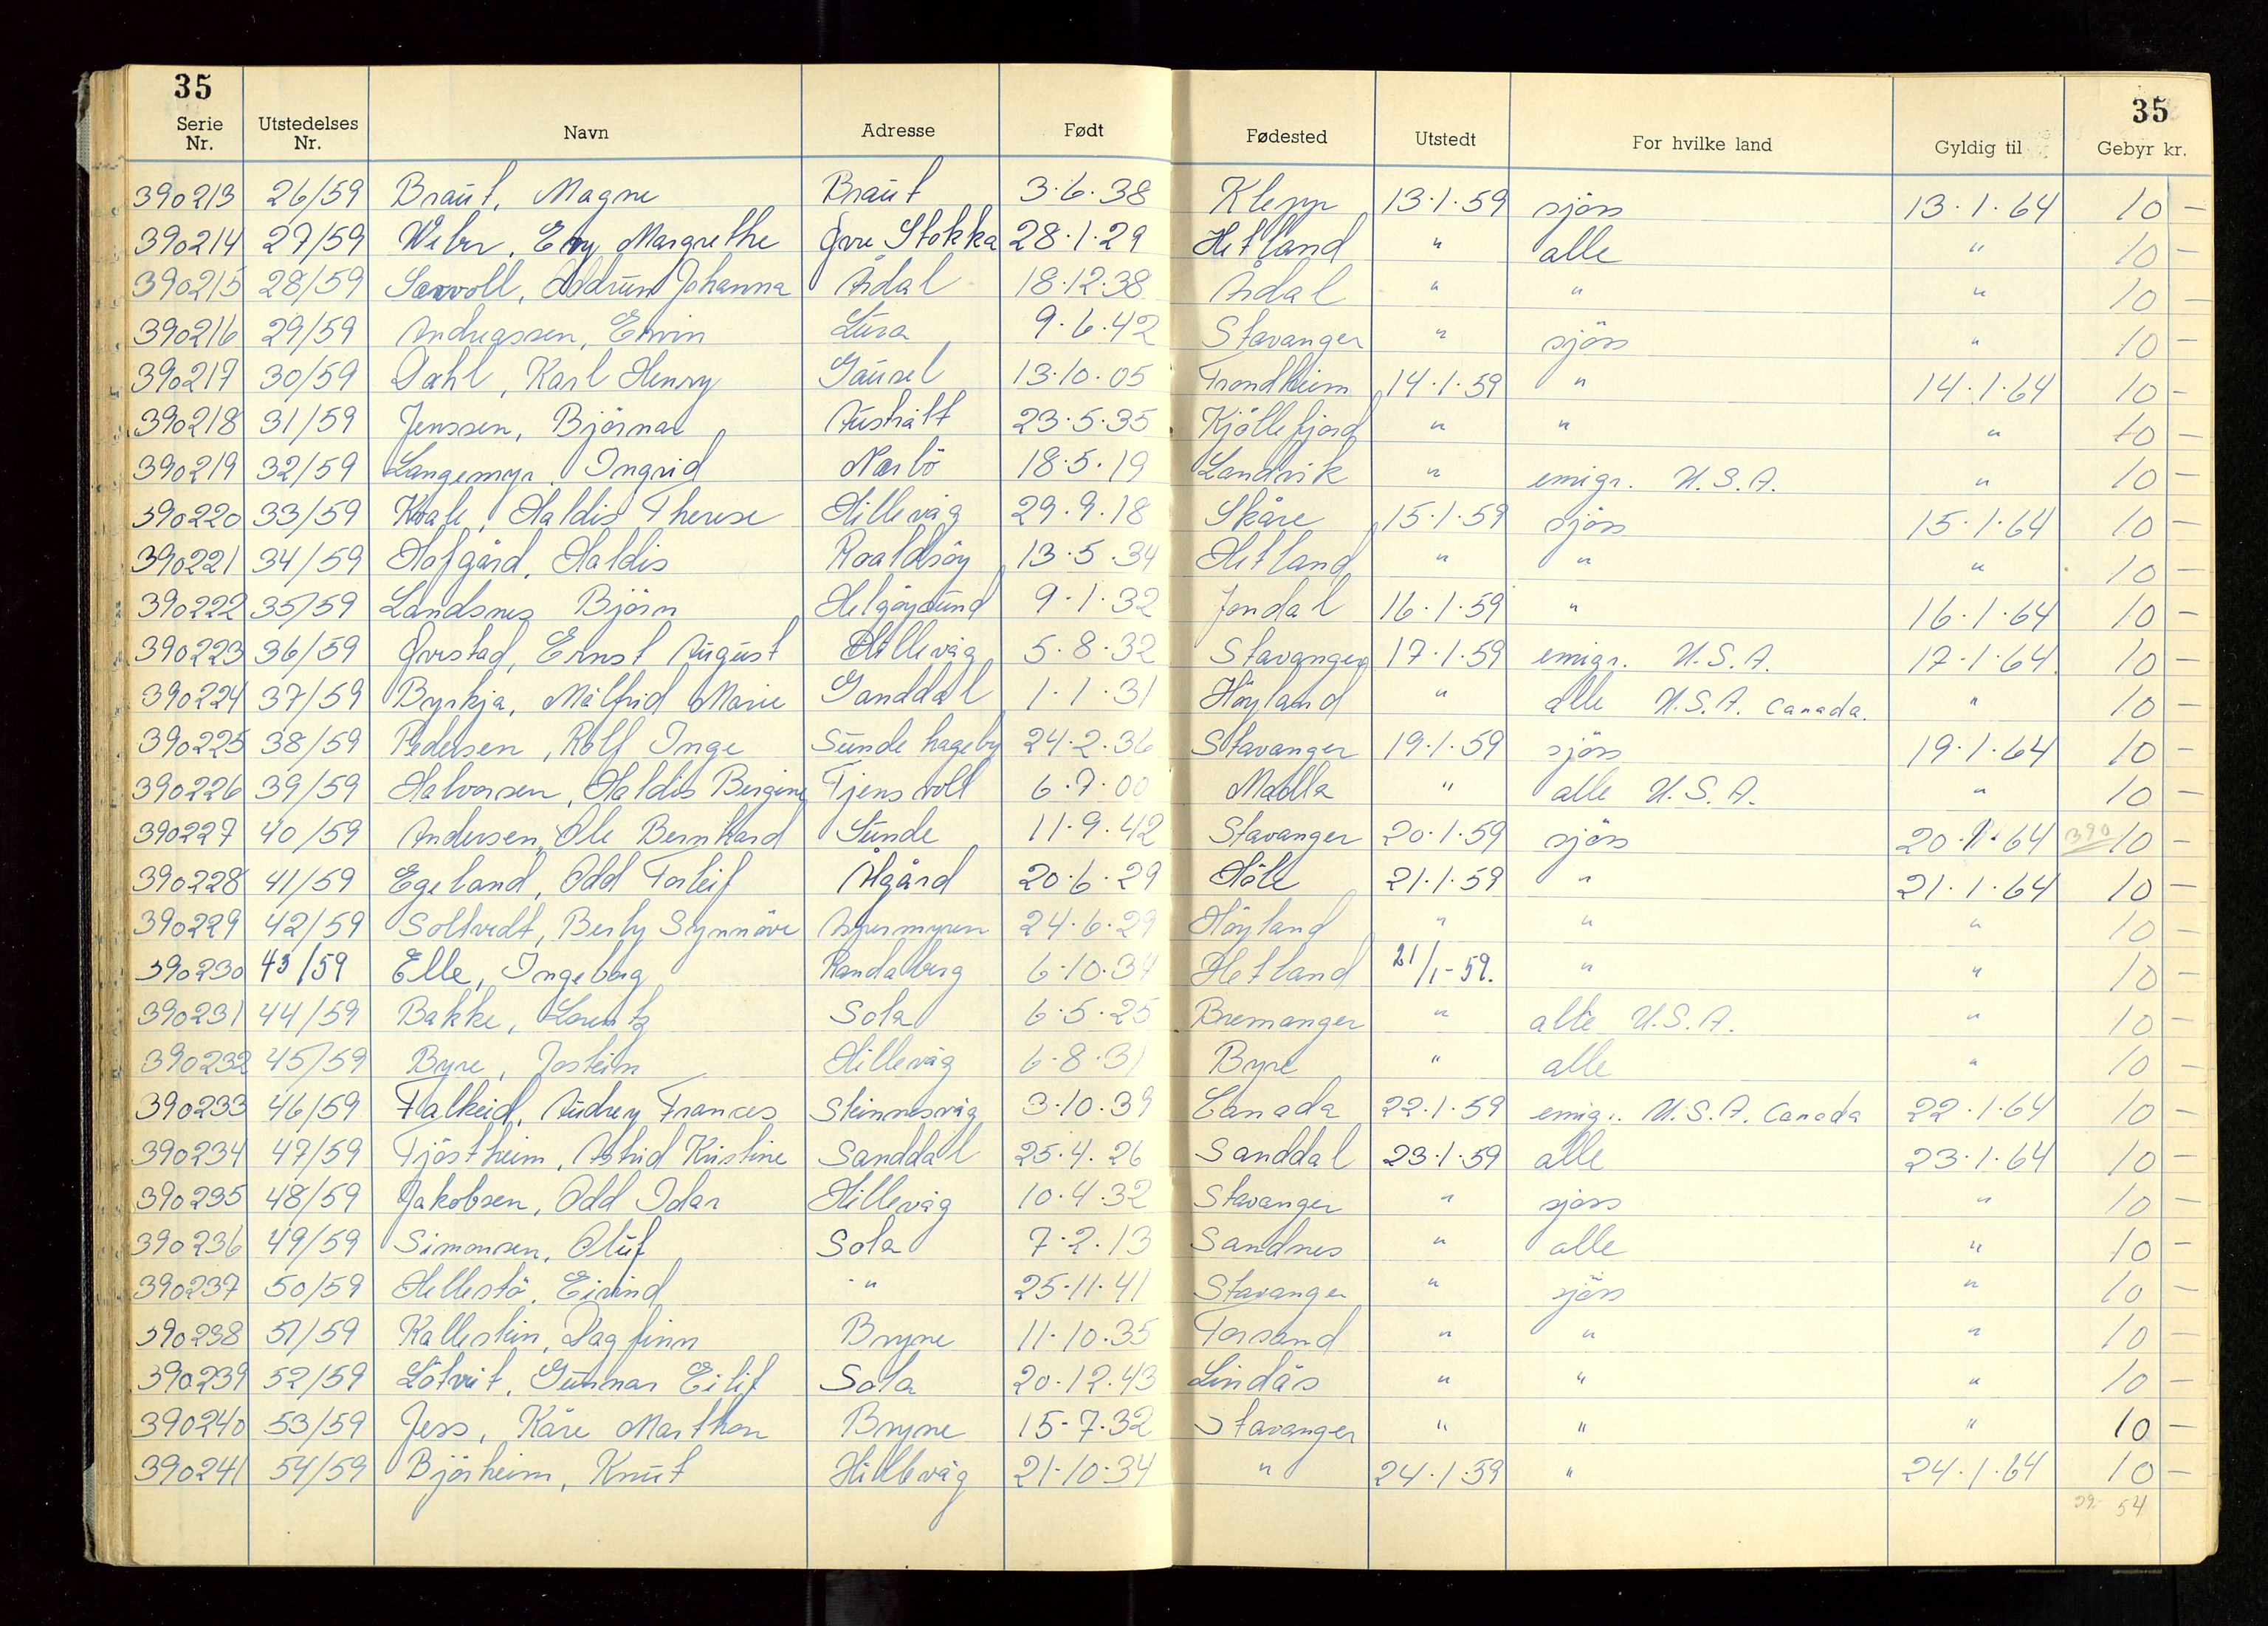 35 35
Serie Nr. Utstedelses Nr. Navn Adresse Født Fødested Utstedt For hvilke land Gyldig til Gebyr kr.
390213 26/59 Braut, Magne Braut 3.6.38 Klepp 13.1.59 sjöss 13.1.64 10 —
390214 27/59 Weber, Eny Margrethe Øvre Stokka 28.1.29 Hetland " alle " 10 —
390215 28/59 Johanna Ådal 18.12.38 Ådal " " " 10 —
390216 29/59 Andreassen, Erwin Lura 9.6.42 Stavanger " sjöss " 10 —
390217 30/59 Dahl, Karl Henry Gausel 13.10.05 Trondheim 14.1.59 " 14.1.64 10 —
390218 31/59 Jenssen, Björnar Austrått 23.5.35 Kjöllefjord " " " 10 —
390219 32/59 Langemyr, Ingrid Nærbö 18.5.19 Landvik " emigr. U.S.A. " 10 —
390220 33/59 Haldis Therese Hillevåg 29.9.18 Skåre 15.1.59 sjöss 15.1.64 10 —
390221 34/59 Hofgård, Haldis Roaldsöy 13.5.34 Hetland " " " 10 —
390222 35/59 Landsnes Björn Helgöysund 9.1.32 Jondal 16.1.59 " 16.1.64 10 —
390223 36/59 Øvrstad, Ernst August Hillevåg 5.8.32 Stavanger 17.1.59 emigr. U.S.A. 17.1.64 10 —
390224 37/59 Byrkja, Målfrid Marie Ganddal 1.1.31 Höyland " alle U.S.A. Canada. " 10 —
390225 38/59 Pedersen, Rolf Inge Sunde hageby 24.2.36 Stavanger 19.1.59 sjöss 19.1.64 10 —
390226 39/59 Halvorsen, Haldis Bergine Tjensvoll 6.7.00 Malla " alle U.S.A. " 10 —
390227 40/59 Andersen, Ole Bernhard Sunde 11.9.42 Stavanger 20.1.59 sjöss 20.1.64 390 10 —
390228 41/59 Egeland, Odd Torleif Ålgård 20.6.29 Höle 21.1.59 " 21.1.64 10 —
390229 42/59 Soltvedt, Berly Synnöve Aspermyren 24.6.29 Höyland " " " 10 —
390230 43/59 Elle, Ingeborg Randaberg 6.10.34 Hetland 21/1-59. " " 10 —
390231 44/59 Bakke, Lorentz Sola 6.5.25 Bremanger " alle U.S.A. " 10 —
390232 45/59 Byre, Jostein Hillevåg 6.8.31 Byre " alle " 10 —
390233 46/59 Falkeid, Audrey Frances Steinnesvåg 3.10.39 Canada 22.1.59 emigr. U.S.A. Canada 22.1.64 10 —
390234 47/59 Tjöstheim, Astrid Kristine Sanddal 25.4.26 Sanddal 23.1.59 alle 23.1.64 10 —
390235 48/59 Jakobsen, Odd Idar Hillevåg 10.4.32 Stavanger " sjöss " 10 —
390236 49/59 Simonsen, Oluf Sola 7.2.13 Sandnes " alle " 10 —
390237 50/59 Hellestö, Eivind " 25.11.41 Stavanger " sjöss " 10 —
390238 51/59 Kallestein, Dagfinn Bryne 11.10.35 Forsand " " " 10 —
390239 52/59 Lötveit, Gunnar Eilif Sola 20.12.43 Lindås " " " 10 —
390240 53/59 Jess, Kåre Marthon Bryne 15.7.32 Stavanger " " " 10 —
390241 54/59 Björheim, Knut Hillevåg 21.10.34 " 24.1.59 " 24.1.64 10 —
29. 54